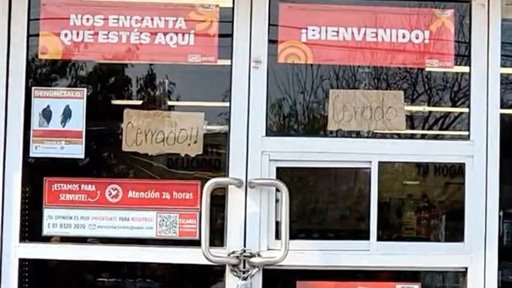 NOS ENCANTA
QUE ESTÉS AQUÍ
¡BIENVENIDO!
DENÚNCIALO
Cerrado!!
Cerrado
DELICIOSO
TU HOGAR
¡ESTAMOS PARA
SERVIRTE!
Atención 24 horas
¡TU OPINIÓN ES MUY IMPORTANTE PARA NOSOTROS!
81 8320 2020